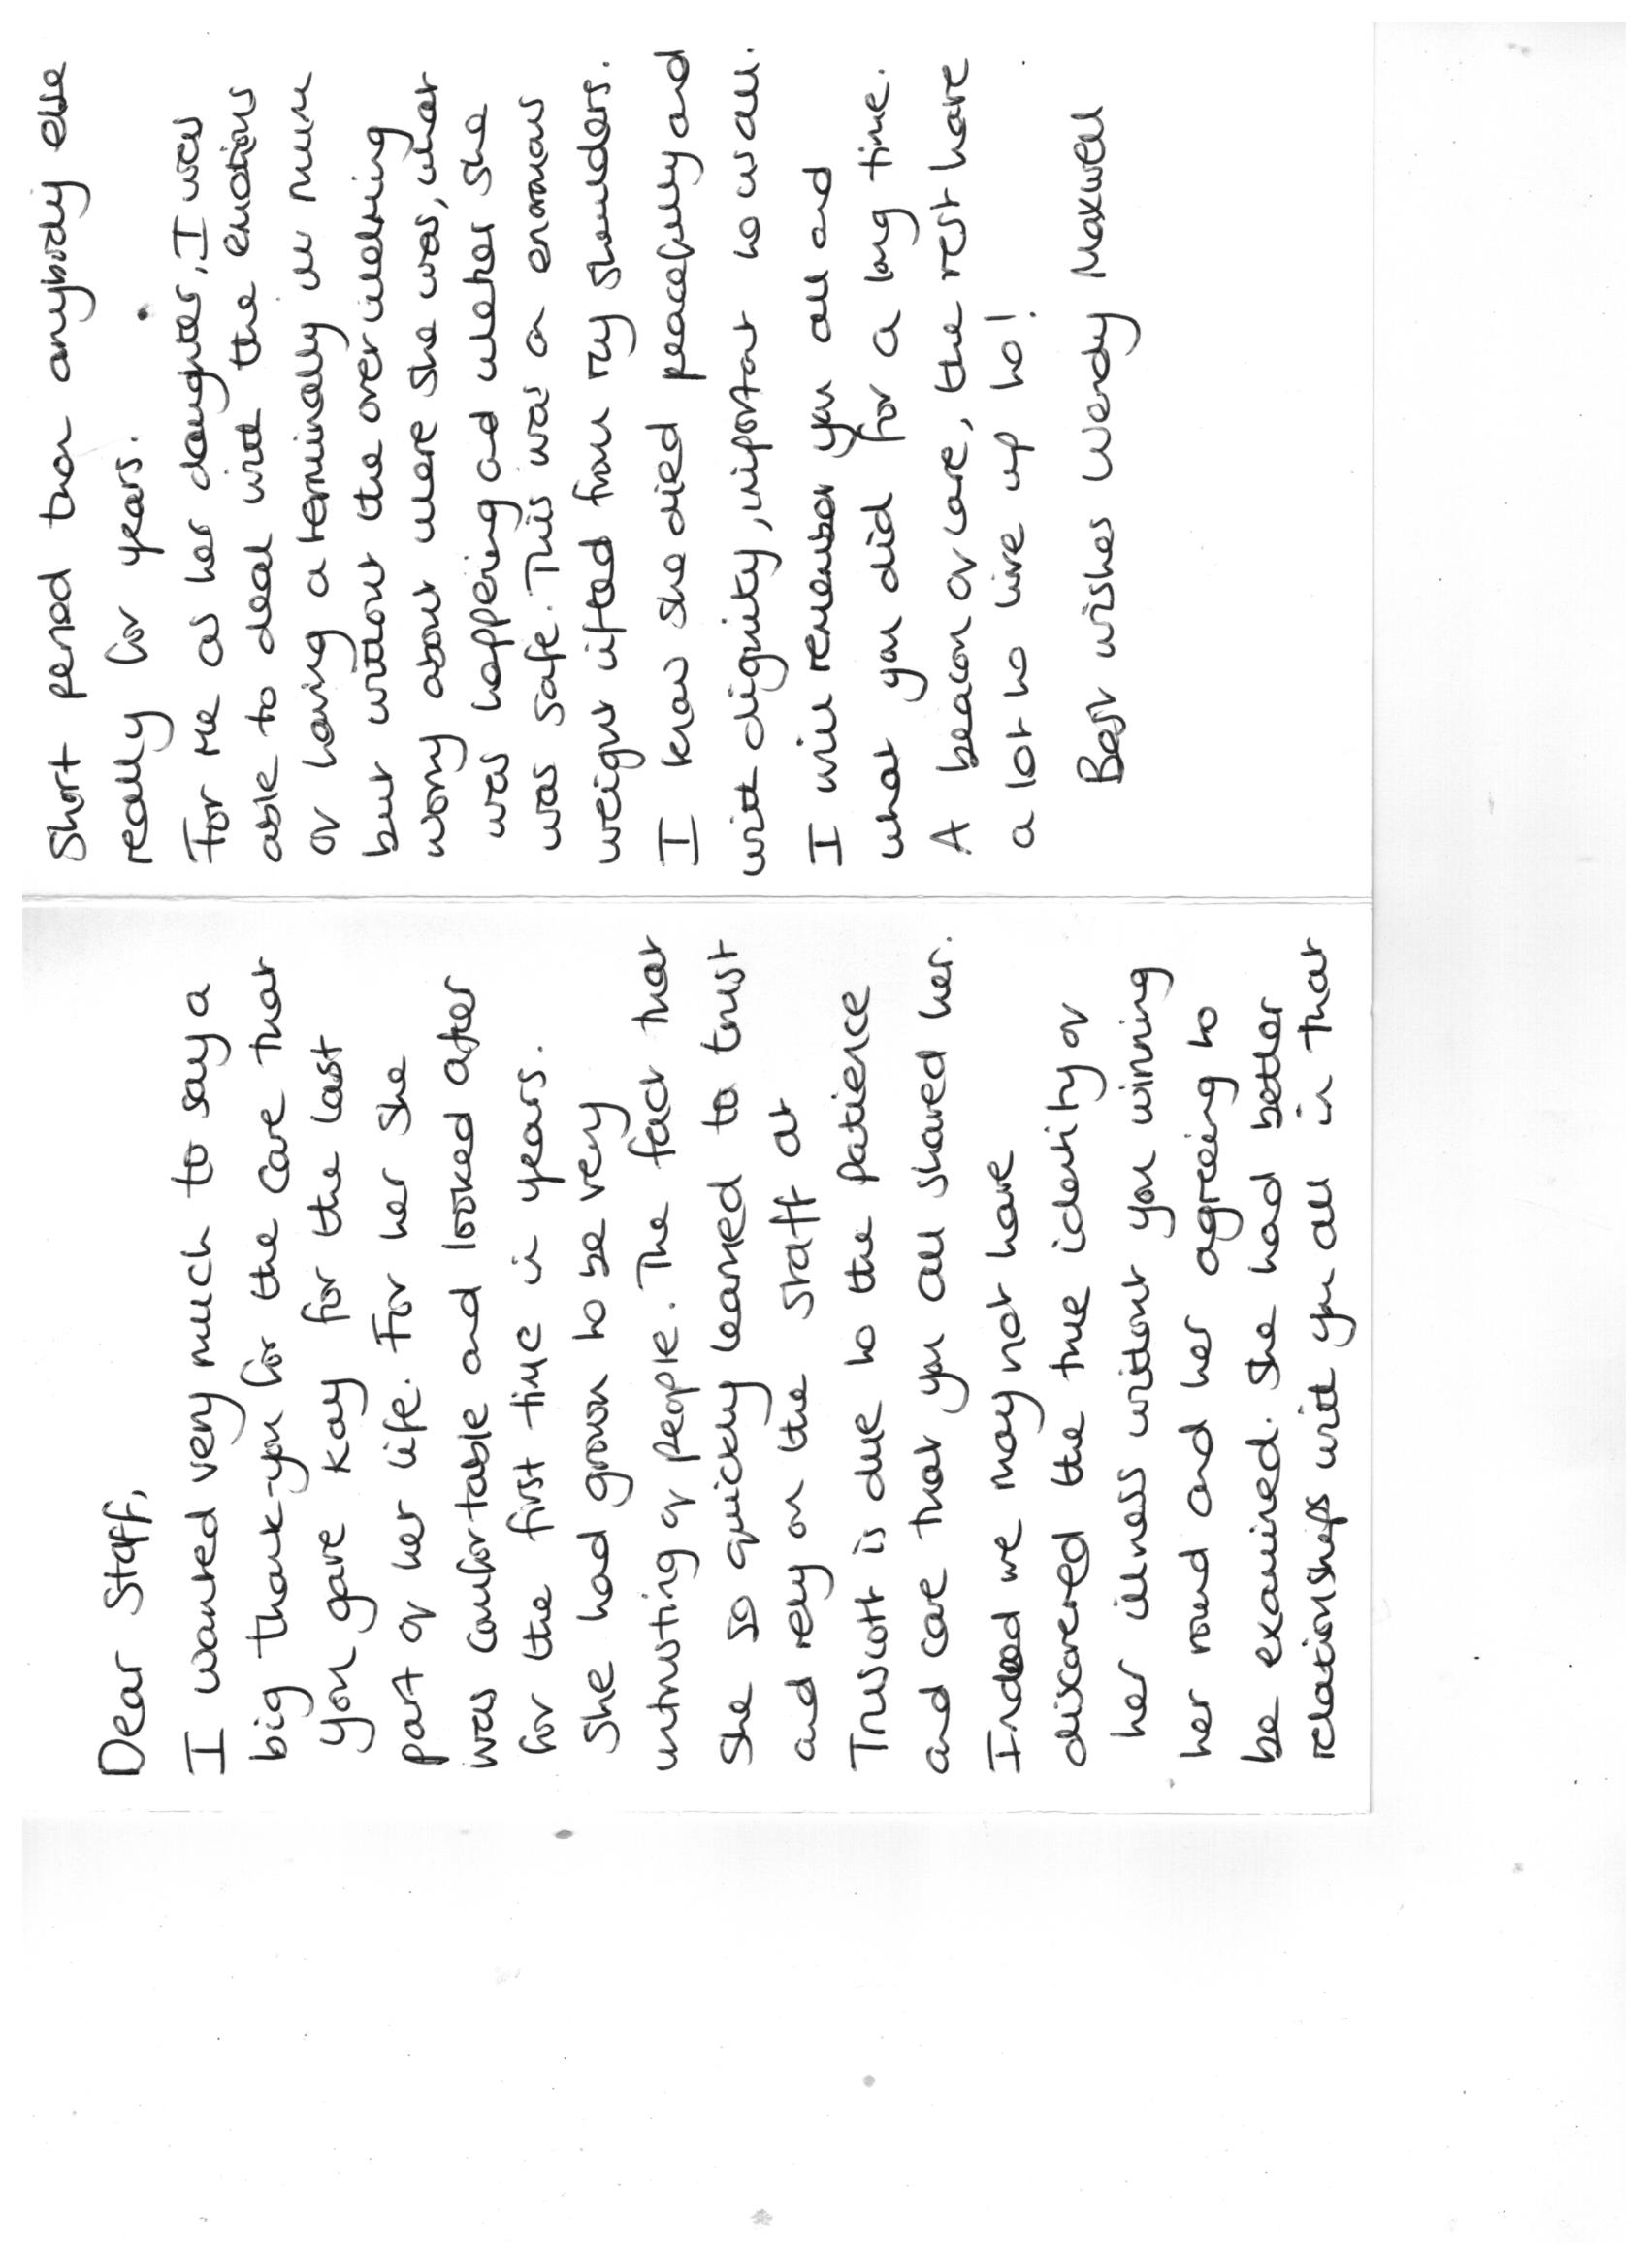 Dear Staff,
I wanted very much to say a
big thank-you for the care that
you gave Kay for the last
part of her life. For her she
was comfortable and looked after
for the first time in years.
She had grown to be very
untrusting of people. The fact that
she so quickly learned to trust
and rely on the staff at
Truscott is due to the patience
and care that you all shared her.
Indeed we may not have
discovered the true identity of
her illness without you winning
her round and her agreeing to
be examined. She had better
relationships with you all in that
short period than anybody else
really for years.
For me as her daughter, I was
able to deal with the emotions
of having a terminally ill mum
but without the overwelming
worry about where she was, what
was happening and whether she
was safe. This was an enormous
weight lifted from my shoulders.
I know she died peacefully and
with dignity, important to us all.
I will remember you all and
what you did for a long time.
A beacon of care, the rest have
a lot to live up to!
Best wishes Wendy Maxwell